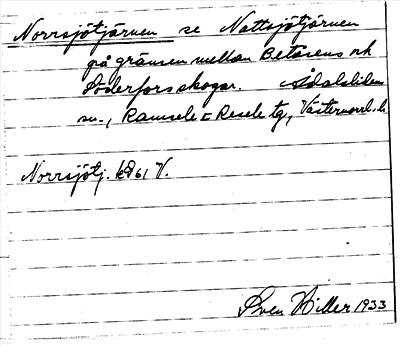 Norrsjötjärnen se Nattsjötjärnen
på gränsen mellan Betåsens och
Söderfors skogar. Ådalsliden
sn., Ramsele o Resele tg, Västernorrl. l.
Norrsjötj. k861 V.
Sven Hiller 1933